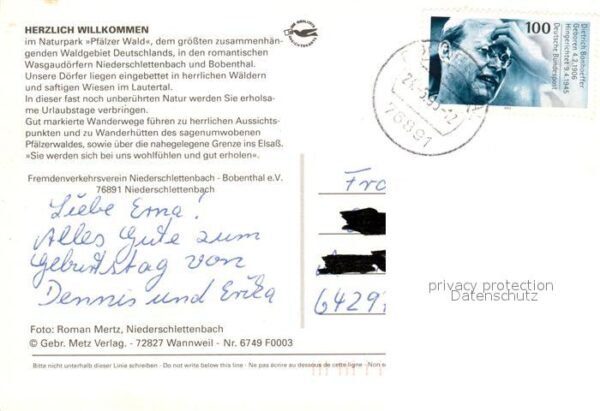 HERZLICH WILLKOMMEN
im Naturpark »Pfälzer Wald«, dem größten zusammenhän-
genden Waldgebiet Deutschlands, in den romantischen
Wasgaudörfern Niederschlettenbach und Bobenthal.
Unsere Dörfer liegen eingebettet in herrlichen Wäldern
und saftigen Wiesen im Lautertal.
In dieser fast noch unberührten Natur werden Sie erholsa-
me Urlaubstage verbringen.
Gut markierte Wanderwege führen zu herrlichen Aussichts-
punkten und zu Wanderhütten des sagenumwobenen
Pfälzerwaldes, sowie über die nahegelegene Grenze ins Elsaß.
»Sie werden sich bei uns wohlfühlen und gut erholen«.
Fremdenverkehrsverein Niederschlettenbach - Bobenthal e.V.
76891 Niederschlettenbach
Liebe Erna!
Alles Gute zum
Geburtstag von
Dennis und Erika
Foto: Roman Mertz, Niederschlettenbach
© Gebr. Metz Verlag. - 72827 Wannweil - Nr. 6749 F0003
Bitte nicht unterhalb dieser Linie schreiben - Do not write below this line - Ne pas écrire au dessous de cette ligne - Non s
100
Dietrich Bonhoeffer
Geboren 4.2.1906
Hingerichtet 9.4.1945
Deutsche Bundespost
76891
Fra
6429
privacy protection
Datenschutz